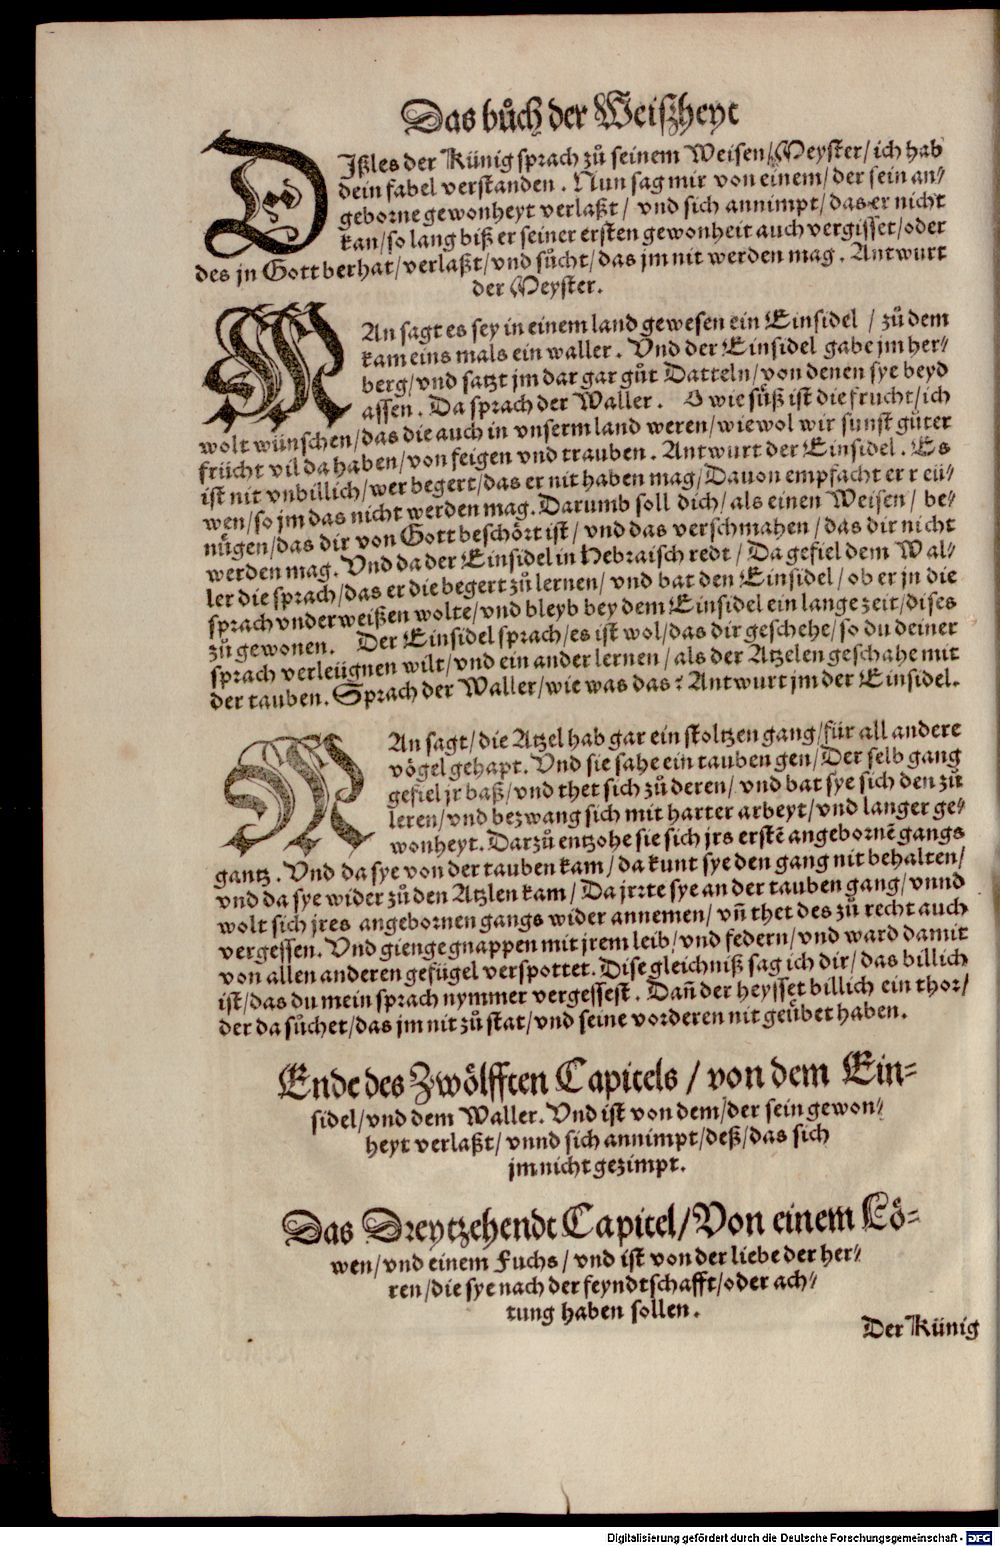 Das bůch der Weiſzheyt
DIßles der Künig sprach zů seinem Weisen/Meyster/ich hab
dein fabel verstanden. Nun sag mir von einem/der sein an⸗
geborne gewonheyt verlaßt/ vnd sich annimpt/das er nicht
kan/so lang biß er seiner ersten gewonheit auch vergisset/oder
des jn Gott berhat/verlaßt/vnd sücht/das jm nit werden mag. Antwurt
der Meyster.
MAn sagt es sey in einem land gewesen ein Einsidel / zů dem
kam eins mals ein waller. Vnd der Einsidel gabe jm her⸗
berg/vnd satzt jm dar gar gůt Datteln/von denen sye beyd
assen. Da sprach der Waller. O wie süß ist die frucht/ich
wolt wünschen/das die auch in vnserm land weren/wiewol wir sunst gůter
frücht vil da haben/von feigen vnd trauben. Antwurt der Einsidel. Es
ist nit vnbillich/wer begert/das er nit haben mag/Dauon empfacht er reü⸗
wen/so jm das nicht werden mag. Darumb soll dich/als einen Weisen/ be⸗
nügen/das dir von Gott beschört ist/ vnd das verschmahen/das dir nicht
werden mag. Vnd da der Einsidel in Hebraisch redt/ Da gefiel dem Wal⸗
ler die sprach/das er die begert zů lernen/ vnd bat den Einsidel/ob er jn die
sprach vnderweißen wolte/vnd bleyb bey dem Einsidel ein lange zeit/dises
zů gewonen. Der Einsidel sprach/es ist wol/das dir geschehe/so du deiner
sprach verleügnen wilt/vnd ein ander lernen/als der Atzelen geschahe mit
der tauben. Sprach der Waller/wie was das? Antwurt jm der Einsidel.
MAn sagt/die Atzel hab gar ein stoltzen gang/für all andere
vögel gehapt. Vnd sie sahe ein tauben gen/Der selb gang
gefiel jr baß/vnd thet sich zů deren/ vnd bat sye sich den zů
leren/vnd bezwang sich mit harter arbeyt/vnd langer ge⸗
wonheyt. Darzů entzohe sie sich jrs erstē angebornē gangs
gantz. Vnd da sye von der tauben kam/da kunt sye den gang nit behalten/
vnd da sye wider zů den Atzlen kam/ Da jrrte sye an der tauben gang/vnnd
wolt sich jres angebornen gangs wider annemen/ vñ thet des zů recht auch
vergessen. Vnd gienge gnappen mit jrem leib/vnd federn/vnd ward damit
von allen anderen gefügel verspottet. Dise gleichniß sag ich dir/das billich
ist/das du mein sprach nymmer vergessest. Dañ der heysset billich ein thor/
der da sůchet/das jm nit zů stat/vnd seine vorderen nit geübet haben.
Ende des Zwölfften Capitels / von dem Ein⸗
sidel/vnd dem Waller. Vnd ist von dem/der sein gewon⸗
heyt verlaßt/ vnnd sich annimpt/deß/das sich
jm nicht gezimpt.
Das Dreytzehendt Capitel/Von einem Lö⸗
wen/vnd einem Fuchs/ vnd ist von der liebe der her⸗
ren/die sye nach der feyndtschafft/oder ach⸗
tung haben sollen.
Der Künig
Digitalisierung gefördert durch die Deutsche Forschungsgemeinschaft - DFG